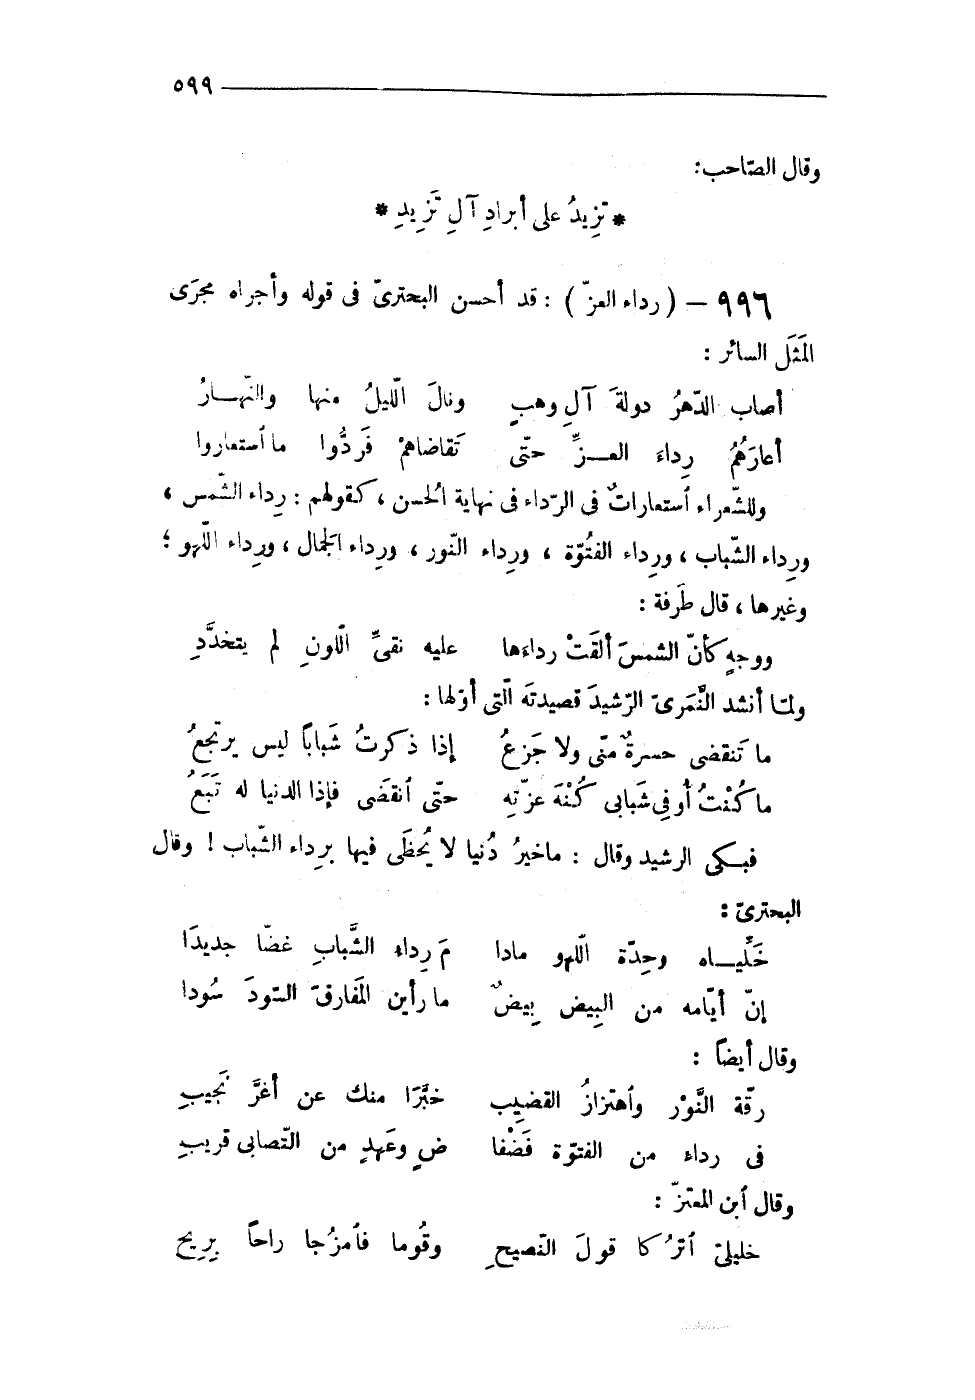 ٥٩٩
وقال الصّاحب:
* تزِيدُ على أبرادِ آلِ تَزِيدِ *
٩٩٦ – ( رداء العزّ ) : قد أحسن البحترىّ فى قوله وأجراه مجرَى
المَثَل السائر :
أصاب الدّهرُ دولةَ آلِ وهبٍ ونالَ الّليلُ منها والنّهارُ
أعارَهُمُ رِداءَ العزِّ حتّى تَقاضاهمْ فَردُّوا ما أستعاروا
وللشّعراء أستعاراتٌ فى الرّداء فى نهاية الُحسن ، كقولهم : رداء الشّمس ،
ورِداء الشّباب ، ورِداء الفتُوّة ، ورِداء النّور ، ورِداء الجمال ، ورِداء اللّهو ؛
وغيرها ، قال طَرفة :
ووجهٍ كأنّ الشمسَ ألقَتْ رداءَها عليه نقىِّ الّلونِ لم يتخدَّدِ
ولمّا أنشد النَّمَرىّ الرّشيدَ قصيدتَه الّتى أوّلها :
ما تَنقضى حسرةٌ منّى ولا جَزعُ إذا ذكرتُ شَباباً ليس يرتجعُ
ما كُنْتُ أُوفِى شَبابى كُنْهَ عزّتِه حتّى أنقضَى فإذا الدنيا له تَبَعُ
فبكى الرشيد وقال : ما خيرُ دُنيا لا يُحظَى فيها برِداء الشّباب ! وقال
البحترىّ :
خَلِّياه وحِدّة اللّهو مادا مَ رِداءِ الشَّبابِ غضّا جديدَا
إنّ أيّامه من البِيض بِيضٌ ما رأين المَفارقَ السّودَ سُودا
وقال أيضاً :
رقّة النَّوْر وأهتزازُ القضيِب خبَّرَا منك عن أغرَّ نَجيبِ
فى رداء من الفتوّة فَضْفا ضٍ وعَهدٍ من التّصابى قريبِ
وقال أبن المعتزّ :
خليلىّ أترُكا قولَ النّصيحِ وقُوما فأمزُجا راحاً بِرِيحِ